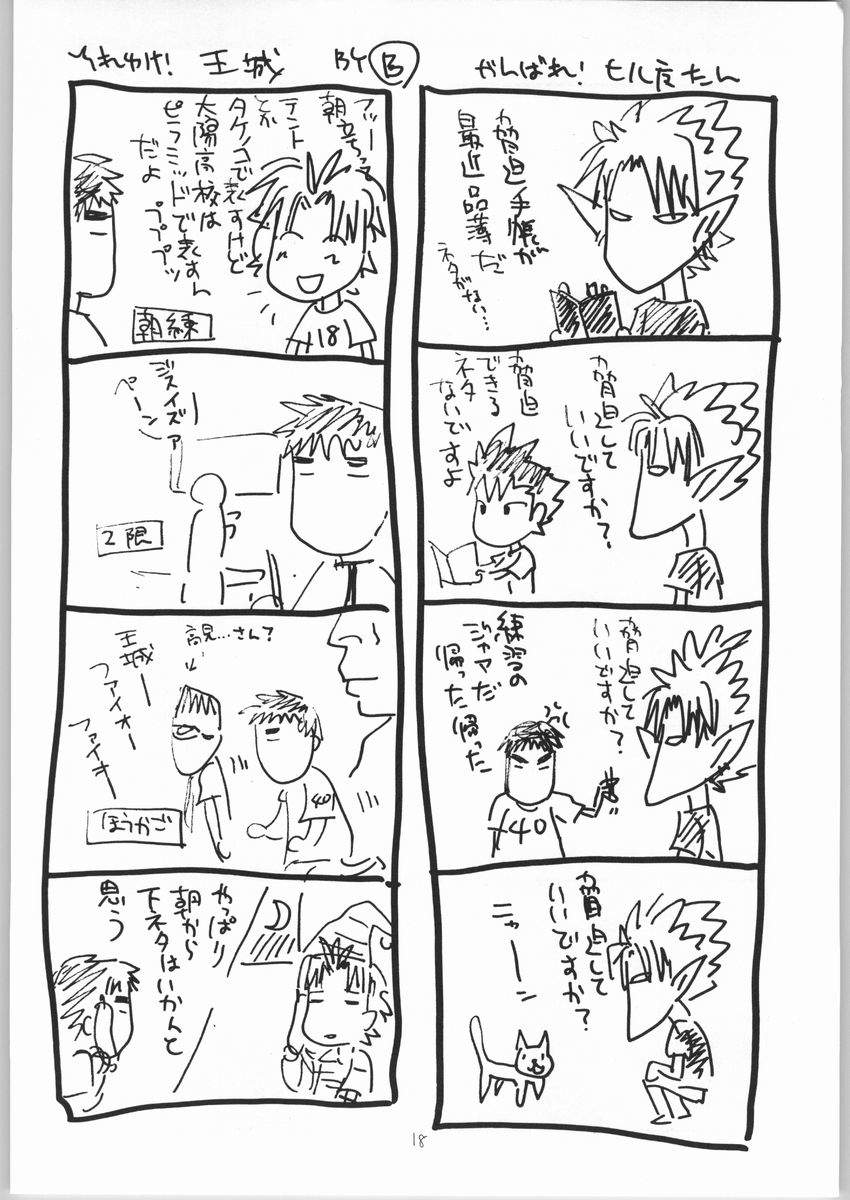 がんばれ! ヒル魔たん
脅迫手帳が
最近品薄だ
ネタがない…
脅迫して
いいですか?
脅迫
できる
ネタ
ないですよ
脅迫して
いいですか?
練習の
ジャマだ
帰った帰った
40
脅迫して
いいですか?
ニャーン
それゆけ! 王城 BY B
フツー
朝立ちって
テント
とか
タケノコで表すけど
太陽高校は
ピラミッドで表すん
だよ
プププッ
18
朝練
ジスイズァ
ペーン
2限
高見…さん?
王城ー
ファイオー
ファイオー
40
ほうかご
やっぱり
朝から
下ネタはいかんと
思う
18